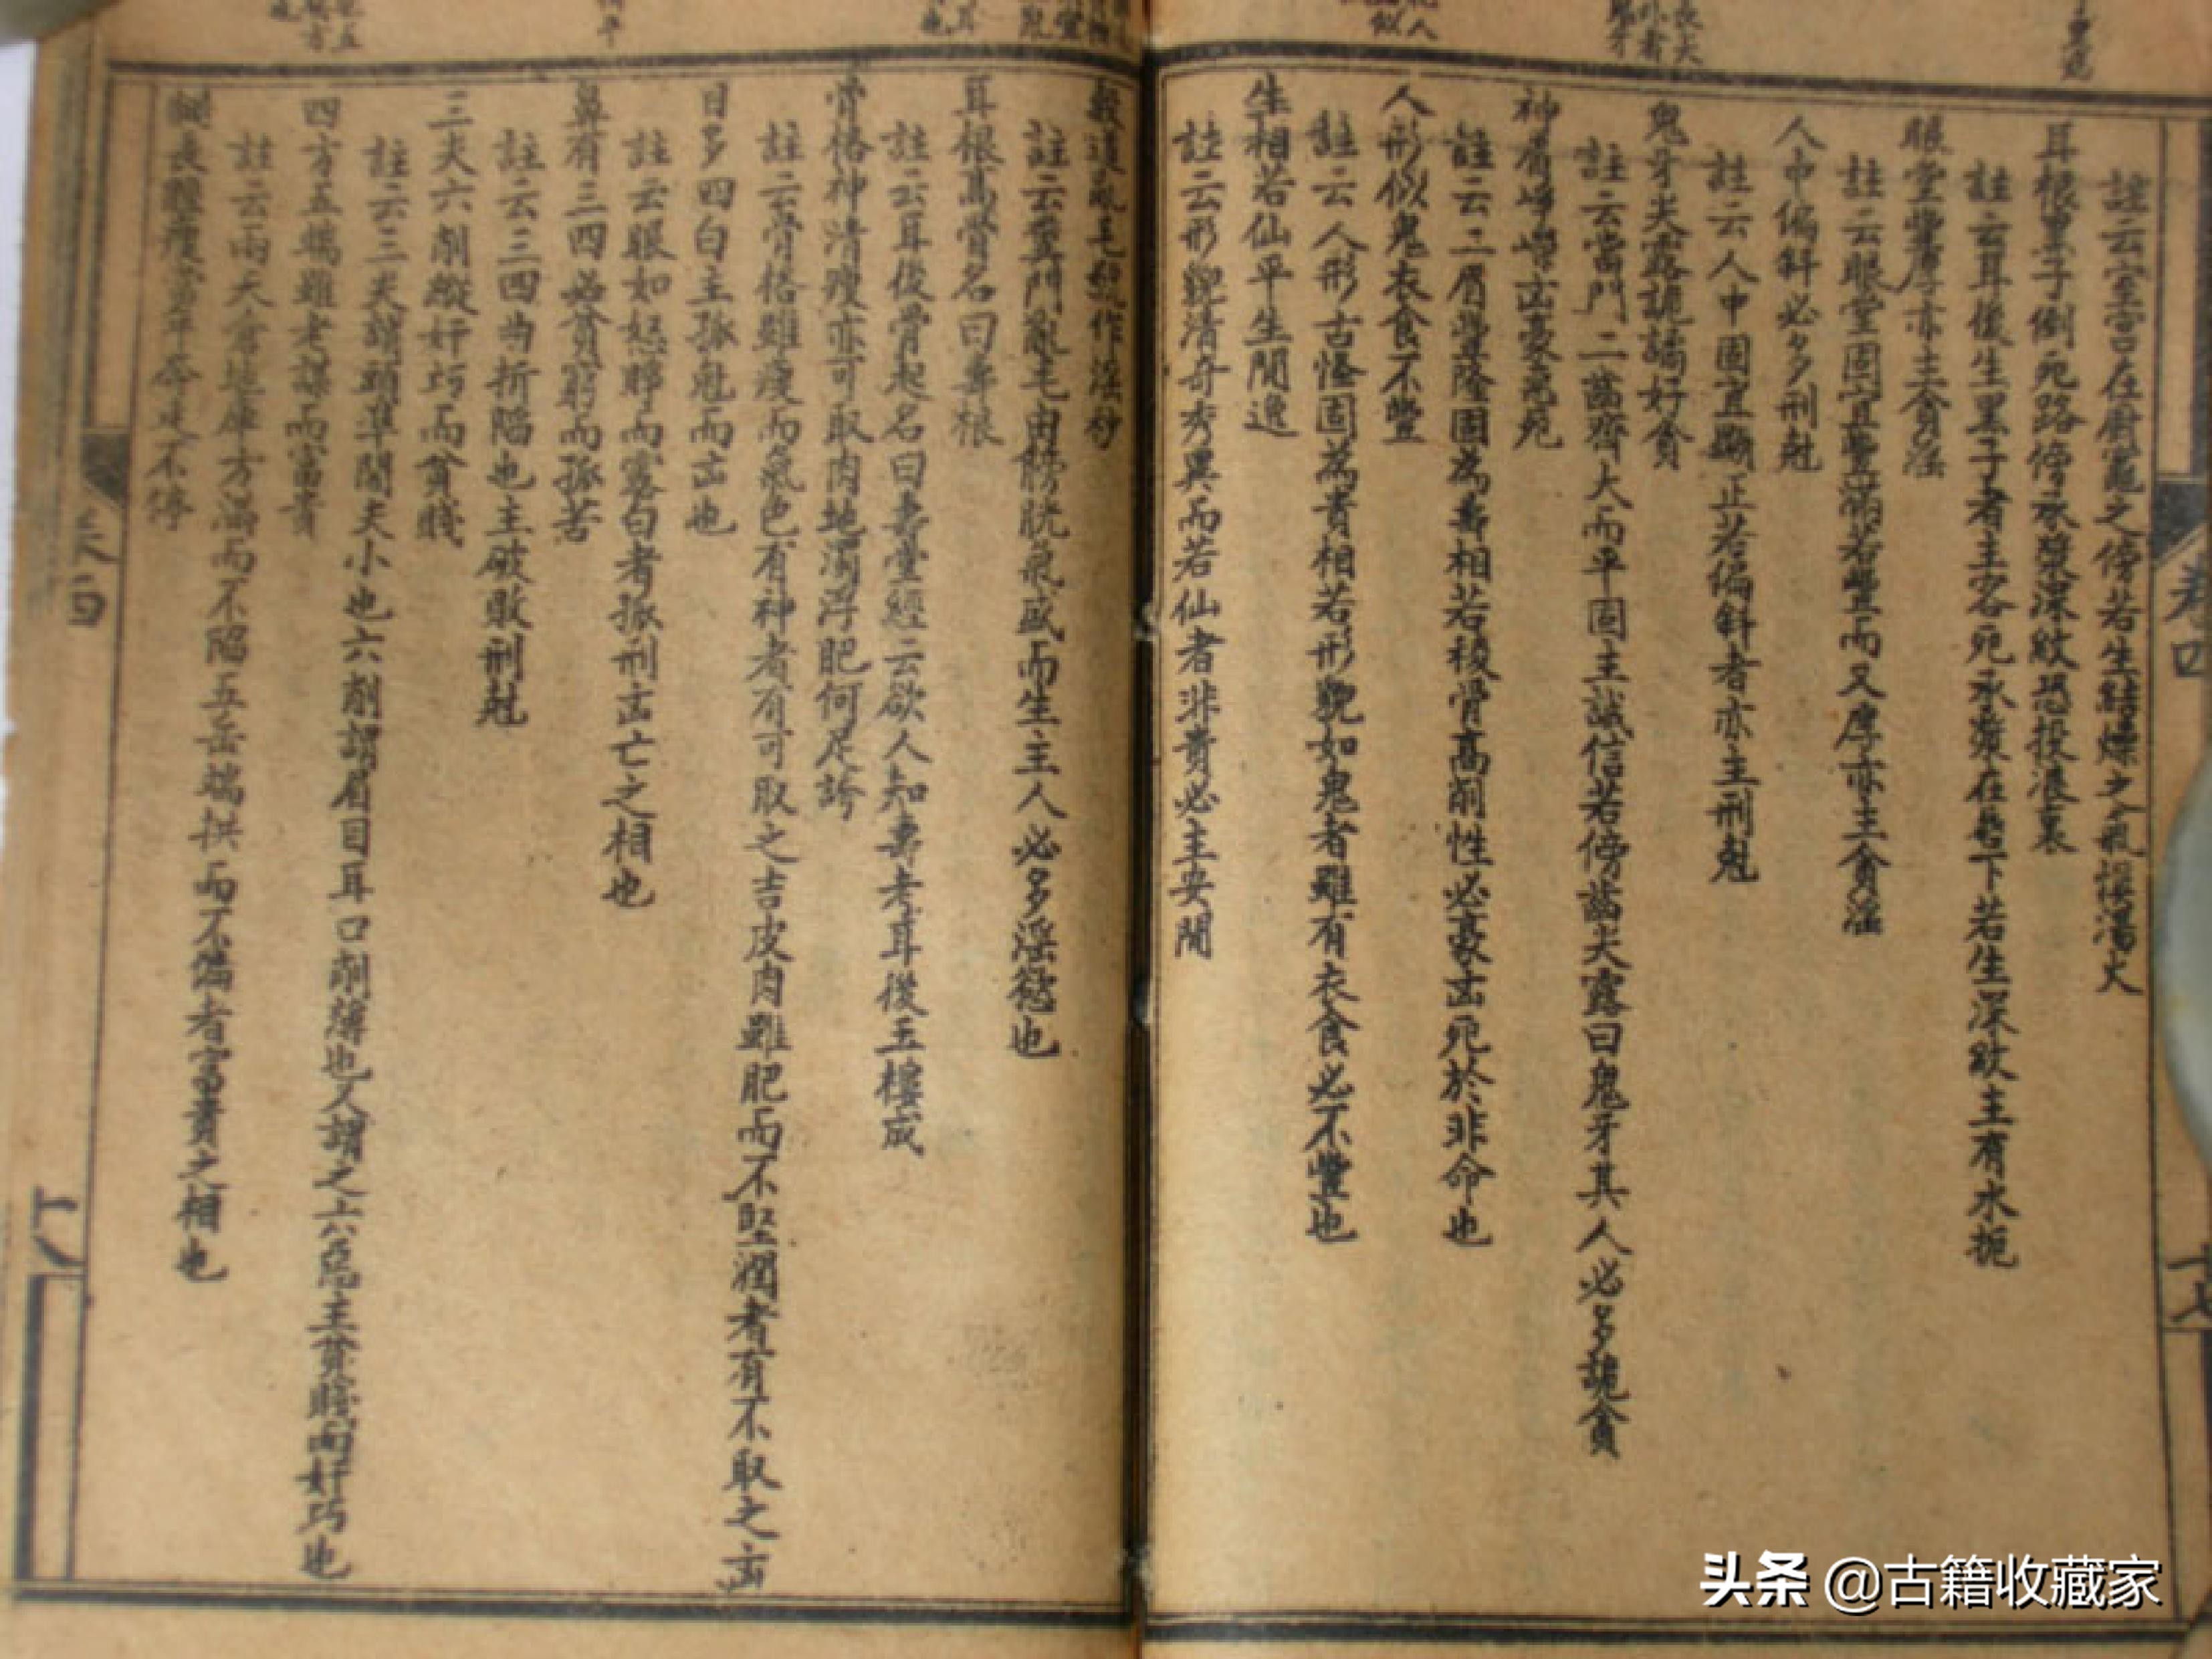 註云室宮在廚竈之傍若生結燥之氣操湯火
耳根黑子倒死路傍承漿深紋恐投浪裏
註云耳後生黑子者主客死承漿在唇下若生深紋主有水扼
眼堂豐厚亦主貪淫
註云眼堂固宜豐滿若豐而又厚亦主貪淫
人中偏斜必多刑尅
註云人中固宜顯正若偏斜者亦主刑尅
鬼牙尖露詭譎好貪
註云當門二齒齊大而平固主誠信若傍齒尖露曰鬼牙其人必多詭貪
神眉崢嶸凶豪惡死
註云二眉豐隆固為壽相若稜骨高削性必豪凶死於非命也
人形似鬼衣食不豐
註云人形古怪固為貴相若形貌如鬼者雖有衣食必不豐也
生相若仙平生閒逸
註云形貌清奇秀異而若仙者非貴必主安閒
穀道亂毛號作淫秒
註云糞門亂毛由膀胱氣盛而生主人必多淫慾也
耳根高骨名曰壽根
註云耳後骨起名曰壽堂經云欲人知壽考耳後玉樓成
骨格神清瘦亦可取肉地濁浮肥何足誇
註云骨格雖瘦而氣色有神者有可取之吉皮肉雖肥而不堅潤者有不取之凶
目多四白主孤尅而凶也
註云眼如怒睜而露白者孤刑凶亡之相也
鼻有三四必貧窮而孤苦
註云三四曲折陷也主破敗刑尅
三夫六削縱奸巧而貧賤
註云三夫謂頭準閣夫小也六削謂眉目耳口削薄也又謂之六惡主貧賤而奸巧也
四方五端雖老謀而富貴
註云兩天倉地庫方滿而不陷五岳端拱而不偏者富貴之相也
長瘦當年奔走不停
卷四
十七
十八
头条 @古籍收藏家